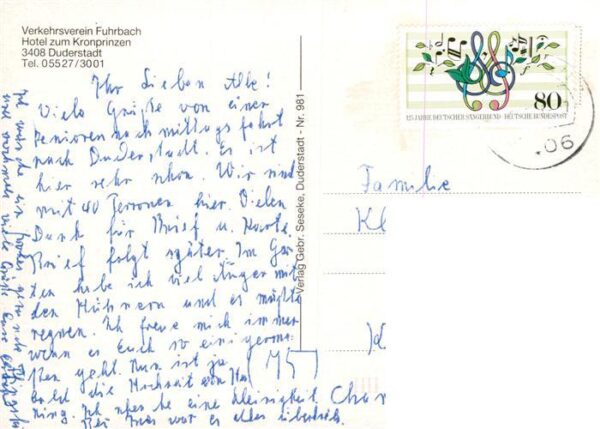 Verkehrsverein Fuhrbach
Hotel zum Kronprinzen
3408 Duderstadt
Tel. 05527/3001
Ihr Lieben Alle!
Viele Grüße von einer
Seniorennachmittagsfahrt
nach Duderstadt. Es ist
hier sehr schön. Wir sind
mit 40 Personen hier. Vielen
Dank für Brief u. Karte.
Brief folgt später. Im Gar
ten habe ich viel Ärger mit
den Hühnern und es müßte
regnen. Ich freue mich immer
wenn es Euch so einigerma
ßen geht. Nun ist ja
bald die Hochzeit von
ning. Ich eine kleinigkeit
Bei war es alles
Ich wünsche ein frohes
und nochmals viele Grüße Eure
Verlag Gebr. Seseke, Duderstadt - Nr. 981
80
125 JAHRE DEUTSCHER SÄNGERBUND DEUTSCHE BUNDESPOST
.06
Familie
Kl